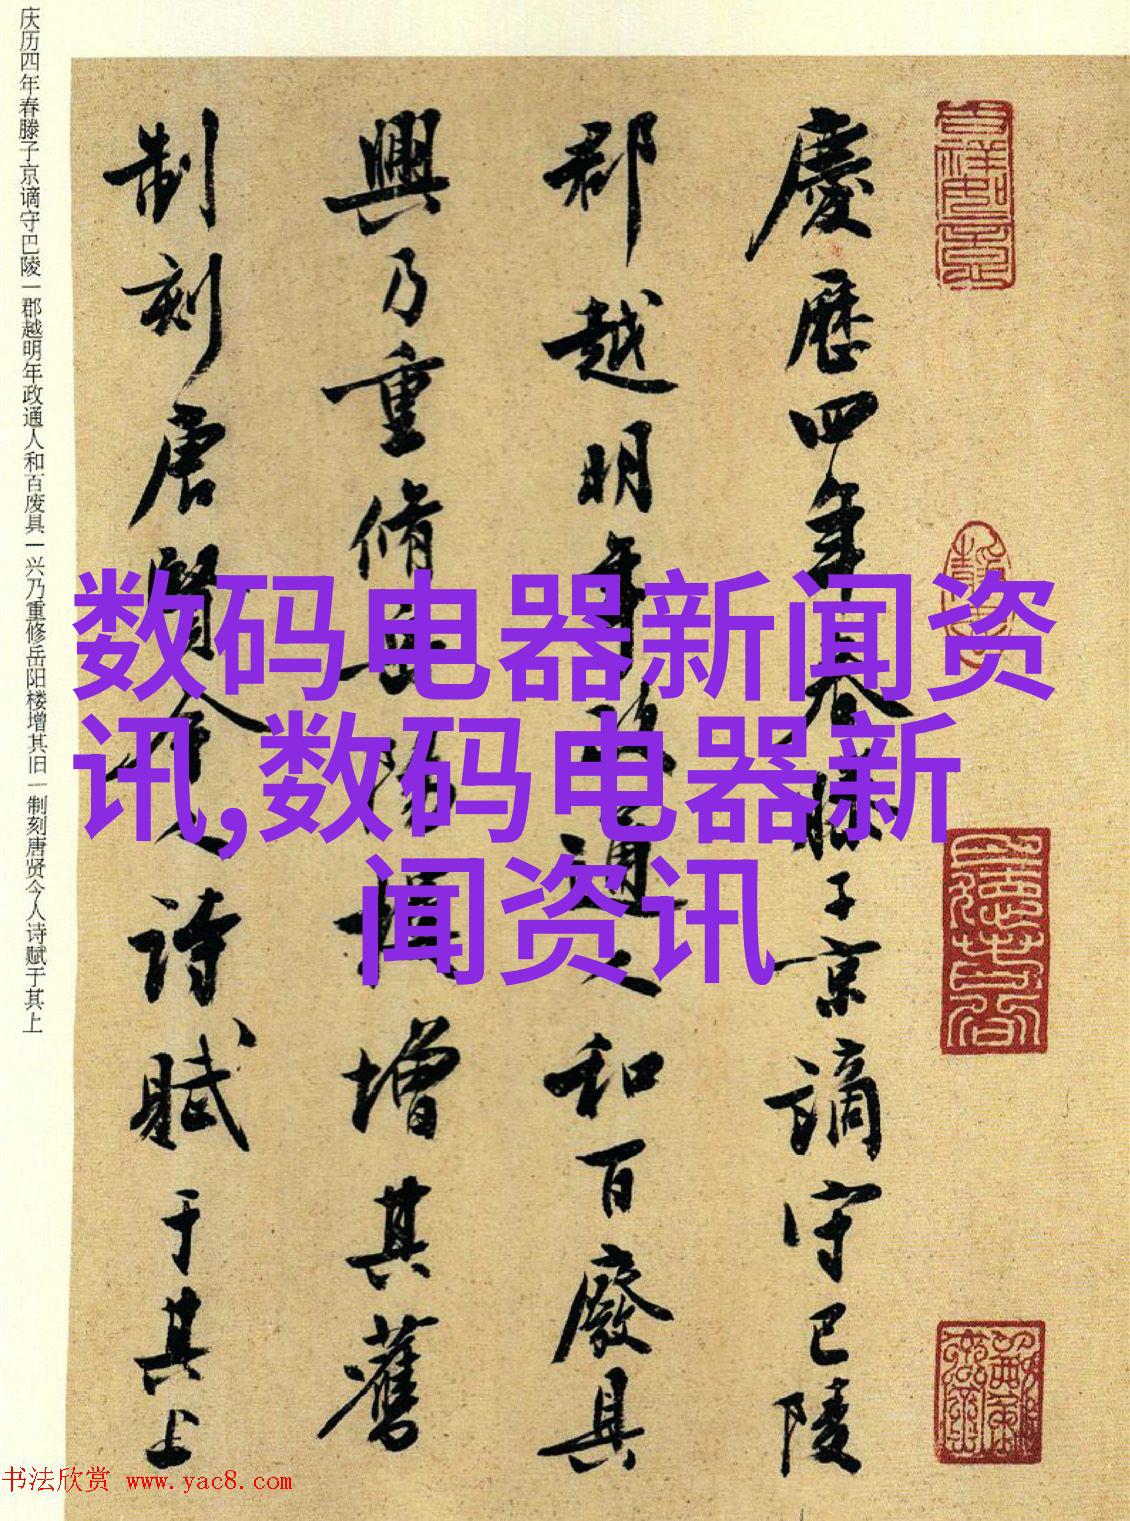 慶歷四年春滕子京謫守巴陵
郡越明年政通人和百廢具
興乃重脩岳陽樓增其舊
制刻唐賢今人詩賦于其上
庆历四年春滕子京谪守巴陵一郡越明年政通人和百废具一兴乃重修岳阳楼增其旧一制刻唐贤今人诗赋于其上
数码电器新闻资
讯,数码电器新
闻资讯
书法欣赏 www.yac8.com